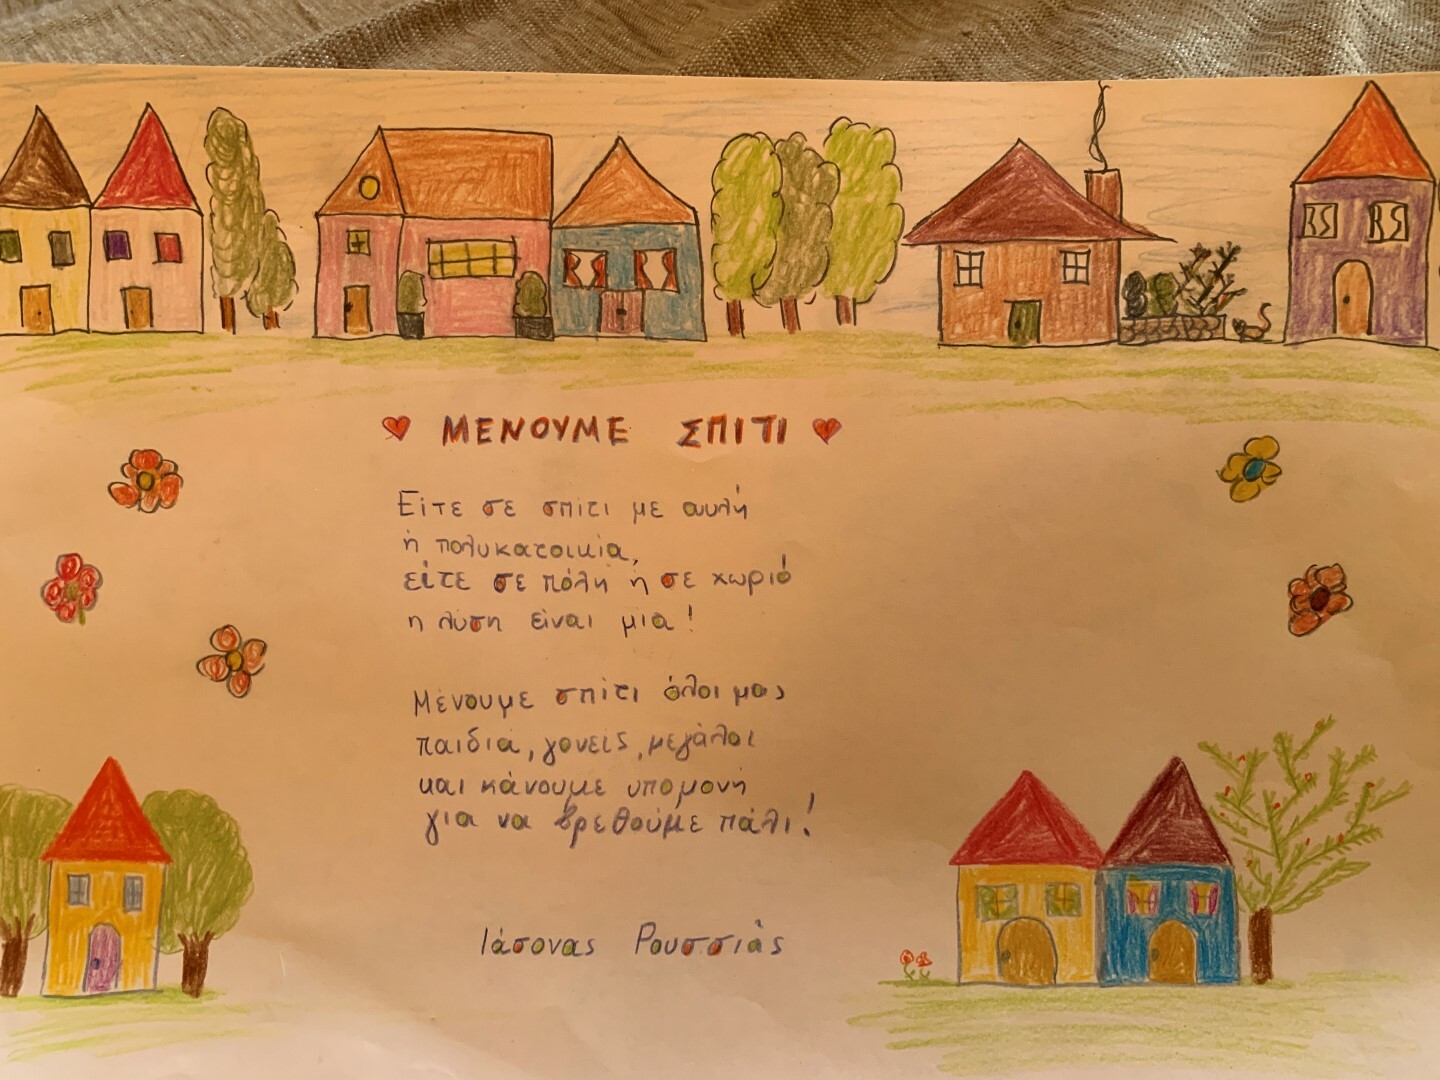 ΜΕΝΟΥΜΕ ΣΠΙΤΙ
Είτε σε σπίτι με αυλή
ή πολυκατοικία,
είτε σε πόλη ή σε χωριό
η λύση είναι μία!
Μένουμε σπίτι όλοι μας
παιδιά, γονείς, μεγάλοι
και κάνουμε υπομονή
για να βρεθούμε πάλι!
Ιάσονας Ρουσσιάς